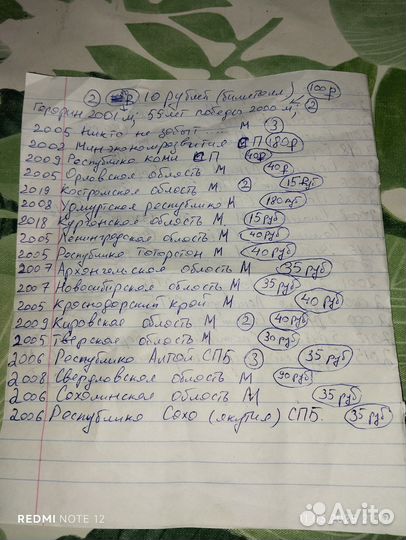 ② 10 рублей (биметалл) 100р
Гагарин 2001 м; 55 лет победы 2000 м; 2
2005 Никто не забыт .... М ③
2002 Мин экономразвития СП 180р
2009 Республика коми СП 40р
2005 Орловская область М 40р
2019 Костромская область М ② 15 руб
2008 Удмуртская республика М 180р
2018 Курганская область М 15 руб
2005 Ленинградская область М 40 руб
2005 Республика Татарстан М 40 руб
2007 Архангельская область М 35 руб
2007 Новосибирская область М 35 руб
2005 Краснодарский край М 40 руб
2009 Кировская область М ② 40 руб
2005 Тверская область М 30 руб
2006 Республика Алтай СПБ ③ 35 руб
2008 Свердловская область М 90 руб
2006 Сахалинская область М 35 руб
2006 Республика Саха (якутия) СПБ. 35 руб
REDMI NOTE 12
Avito